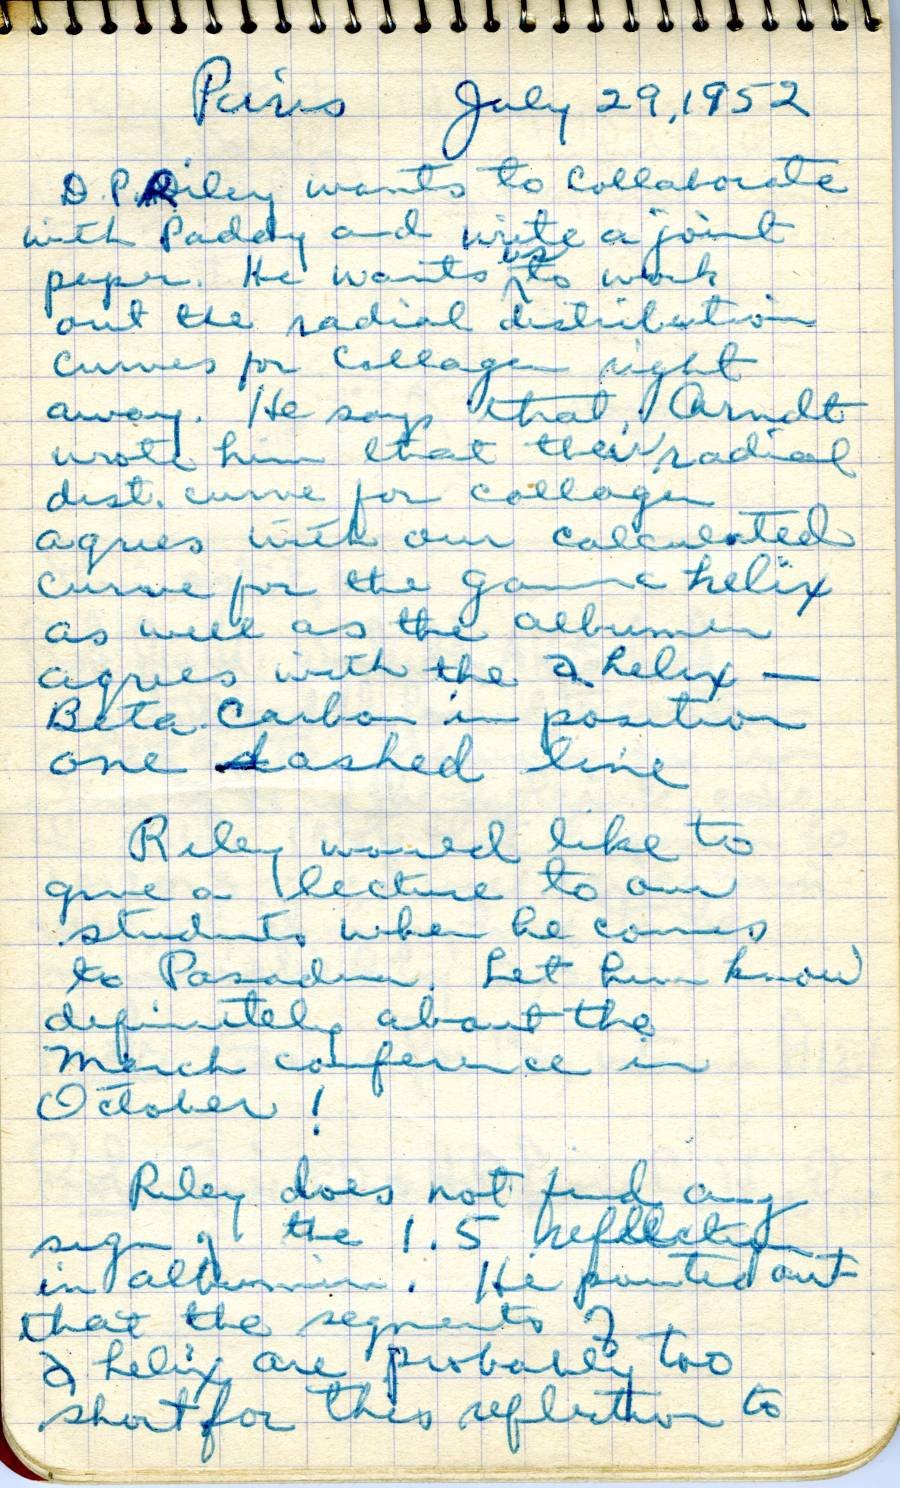 Paris July 29, 1952
D. P. Riley wants to collaborate
with Paddy and write a joint
paper. He wants us to work
out the radial distribution
curves for collagen right
away. He says that Arndt
wrote him that their radial
dist. curve for collagen
agrees with our calculated
curve for the gamma helix
as well as the albumin
agrees with the α helix —
Beta Carbon in position
one dashed line
Riley would like to
give a lecture to our
students when he comes
to Pasadena. Let him know
definitely about the
March conference in
October!
Riley does not find any
sign of the 1.5 reflection
in albumin. He pointed out
that the segments of
α helix are probably too
short for this reflection to